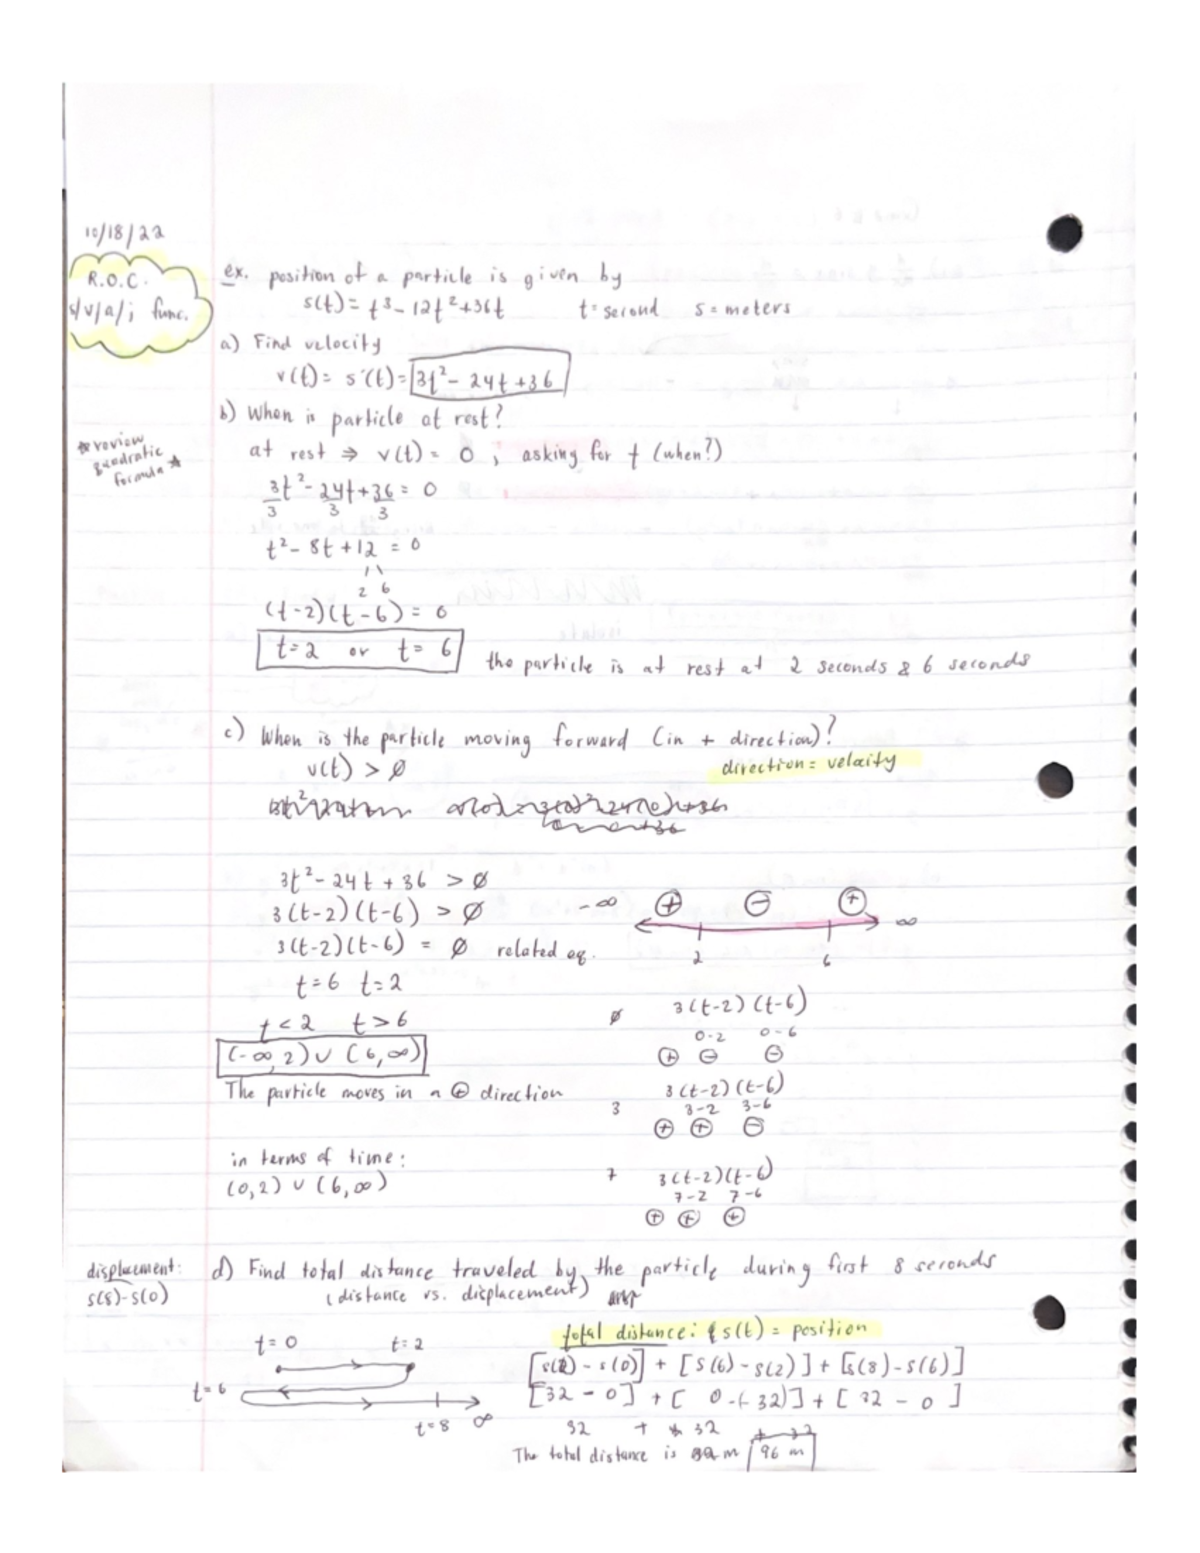 10/18/22
R.O.C.
s/v/a/j func.
ex. position of a particle is given by
s(t) = t³ - 12t² + 36t t = second s = meters
a) Find velocity
v(t) = s'(t) = 3t² - 24t + 36
b) When is particle at rest?
* review quadratic formula *
at rest ⇒ v(t) = 0 , asking for t (when?)
3t² - 24t + 36 = 0
3 3 3
t² - 8t + 12 = 0
2 6
(t-2)(t-6) = 0
t = 2 or t = 6
the particle is at rest at 2 seconds & 6 seconds
c) When is the particle moving forward (in + direction)?
v(t) > ∅
direction = velocity
3t² - 24t + 36 > ∅
3(t-2)(t-6) > ∅
3(t-2)(t-6) = ∅ related eq.
t = 6 t = 2
t < 2 t > 6
(-∞, 2) ∪ (6, ∞)
The particle moves in a ⊕ direction
in terms of time:
(0,2) ∪ (6,∞)
-∞ ⊕ ⊖ ⊕ ∞
2 6
∅ 3(t-2)(t-6)
0-2 0-6
⊕ ⊖ ⊖
3 3(t-2)(t-6)
3-2 3-6
⊕ ⊕ ⊖
7 3(t-2)(t-6)
7-2 7-6
⊕ ⊕ ⊕
displacement:
s(8)-s(0)
d) Find total distance traveled by the particle during first 8 seconds
(distance vs. displacement)
t = 0 t = 2
t = 6
t = 8 ∞
total distance: s(t) = position
[s(2) - s(0)] + [s(6) - s(2)] + [s(8) - s(6)]
[32 - 0] + [0 - (-32)] + [32 - 0]
32 + 32 + 32
The total distance is 96 m